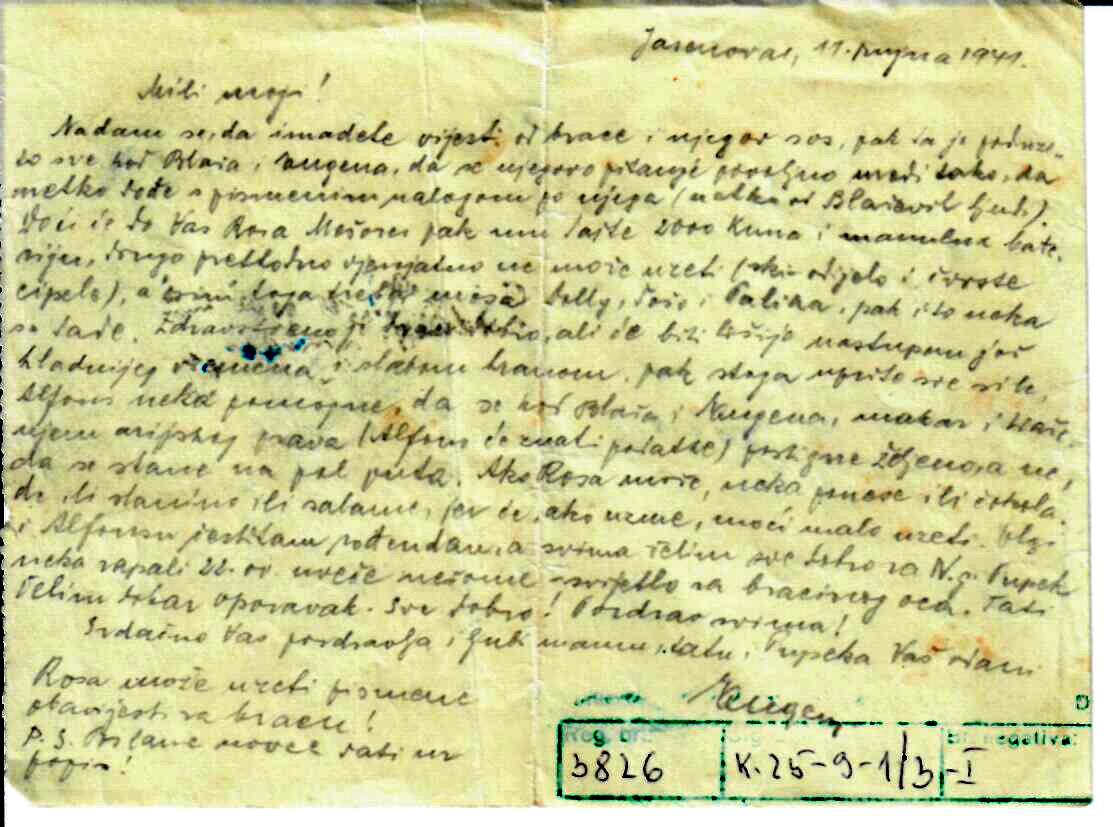 Jasenovac, 11. rujna 1941.
Mili moji!
Nadam se, da imadete vijesti od brace i njegov sos, pak da je poduze-
to sve kod Blaža i Eugena, da se njegovo pitanje povoljno uredi tako, da
netko dođe s pismenim nalogom po njega (netko od Blaževih ljudi).
Doći će do Vas Rosa pak mu dajte 2000 Kuna i manulnu bate-
riju, drugo prethodno vjerojatno ne može uzeti (odijelo i čvrste
cipele), a toga Dolly, Božo i Palika, pak i to neka
se dade. Zdravstveno je dobro, ali će biti lošije nastupom još
hladnijeg vremena i slabom hranom, pak stoga uprite sve sile,
Alfons neka pomogne, da se kod Blaža i Eugena, makar i traže-
njem arijskog prava (Alfons će znati podatke) postigne željeno, a ne,
da se stane na pol puta. Ako Rosa može, neka ponese ili čokola-
de ili slanine ili salame, jer će, ako uzme, moći malo uzeti. Olgi
i Alfonsu čestitam rođendan, a svima želim sve dobro za N.g. Pupek
neka zapali 22. ov. uveče svijetlo za bracinog oca. Tati
želim dobar oporavak. Sve dobro! Pozdrav svima!
Srdačno Vas pozdravlja i ljubi mamu, tatu, Pupeka Vaš odani
Rosa može uzeti pismene
obavijesti za bracu!
P.S. Poslane novce dati uz
popis!
Reg. br.:
negativa:
3826
K. 25-9-1/3-I